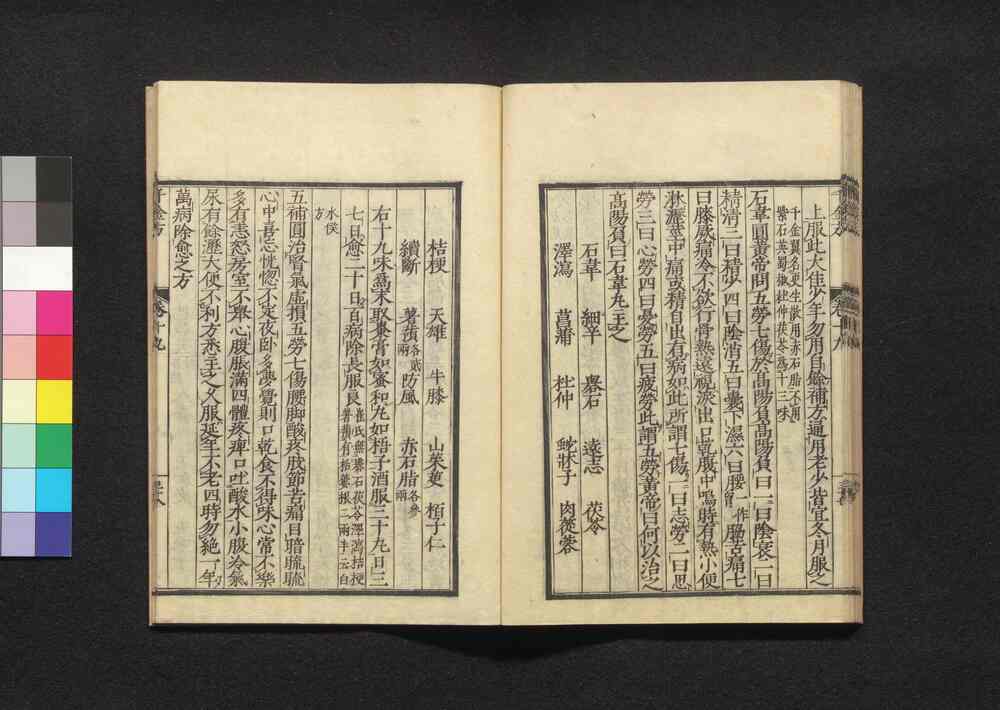 上服此大佳少年勿用自餘補方通用老少皆宜冬月服之
千金翼名更生散用赤石脂不用
紫石英蜀椒杜仲茯苓為十三味
石韋圓黃帝問五勞七傷於高陽負高陽負曰一曰陰衰二曰
精清三曰精少四曰陰消五曰囊下濕六曰腰一作胸脅苦痛七
曰膝厥痛冷不欲行骨熱遠視淚出口乾腹中鳴時有熱小便
淋瀝莖中痛或精自出有病如此所謂七傷一曰志勞二曰思
勞三曰心勞四曰憂勞五曰疲勞此謂五勞黃帝曰何以治之
高陽負曰石韋丸主之
石韋 細辛 礬石 遠志 茯苓
澤瀉 菖蒲 杜仲 蛇牀子 肉蓯蓉
桔梗 天雄 牛膝 山茱萸 栢子仁
續斷 薯蕷各貳兩 防風 赤石脂各參兩
右十九味為末取棗膏如蜜和丸如梧子酒服三十丸日三
七日愈二十日百病除長服良崔氏無礬石茯苓澤瀉桔梗
薯蕷有栝蔞根二兩半云白
水侯
方
五補圓治腎氣虛損五勞七傷腰脚酸疼肢節苦痛目暗𥆨𥆨
心中喜忘恍惚不定夜卧多夢覺則口乾食不得味心常不樂
多有恚怒房室不舉心腹脹滿四體疼痺口吐酸水小腹冷氣
尿有餘瀝大便不利方悉主之久服延年不老四時勿絕一年
萬病除愈之方
千金方 卷十九